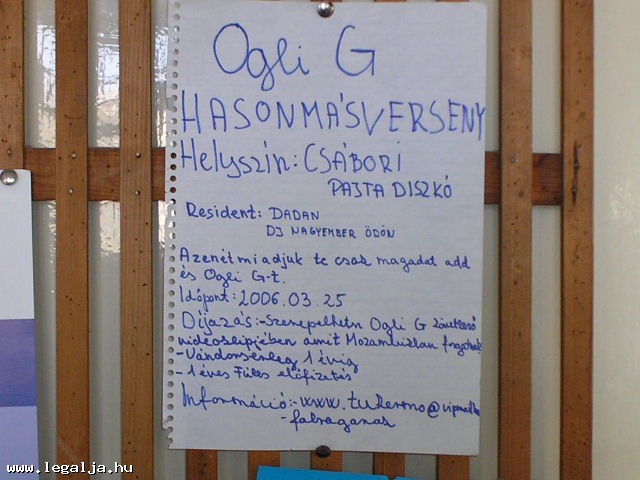 Ogli G
HASONMÁSVERSENY
Helyszín: CSÁBORI
PAJTA DISZKÓ
Resident: DADAN
DJ NAGYEMBER ÖDÖN
A zenét mi adjuk te csak magadat add
és Ogli G-t.
Időpont: 2006.03.25
Díjazás:-Szerepelhetsz Ogli G következő
videoclipjében amit Mozambikban forgatnak
-Vándorserleg 1 évig
-1 éves Füles előfizetés
Információ:-www.tukermo@vipmail.hu
-falragasz
www.legalja.hu